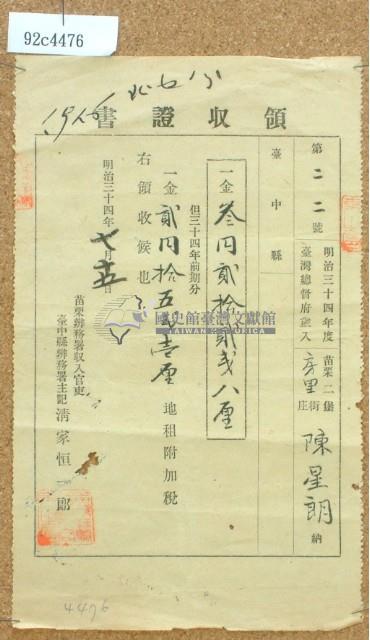 92c4476
領收證書
第二二號
明治三十四年度 苗栗二堡
臺灣總督府歲入 房里街庄 陳星朗 納
臺中縣
一金 叁円貳拾貳戔八厘
但三十四年前期分
一金 貳円拾五戔壹厘 地租附加稅
右領收候也
明治三十四年 七月 五日
苗栗辨務署收入官吏
臺中縣辨務署主記 淸家恒一郎
國史館臺灣文獻館
TAIWAN HISTORICA
4476